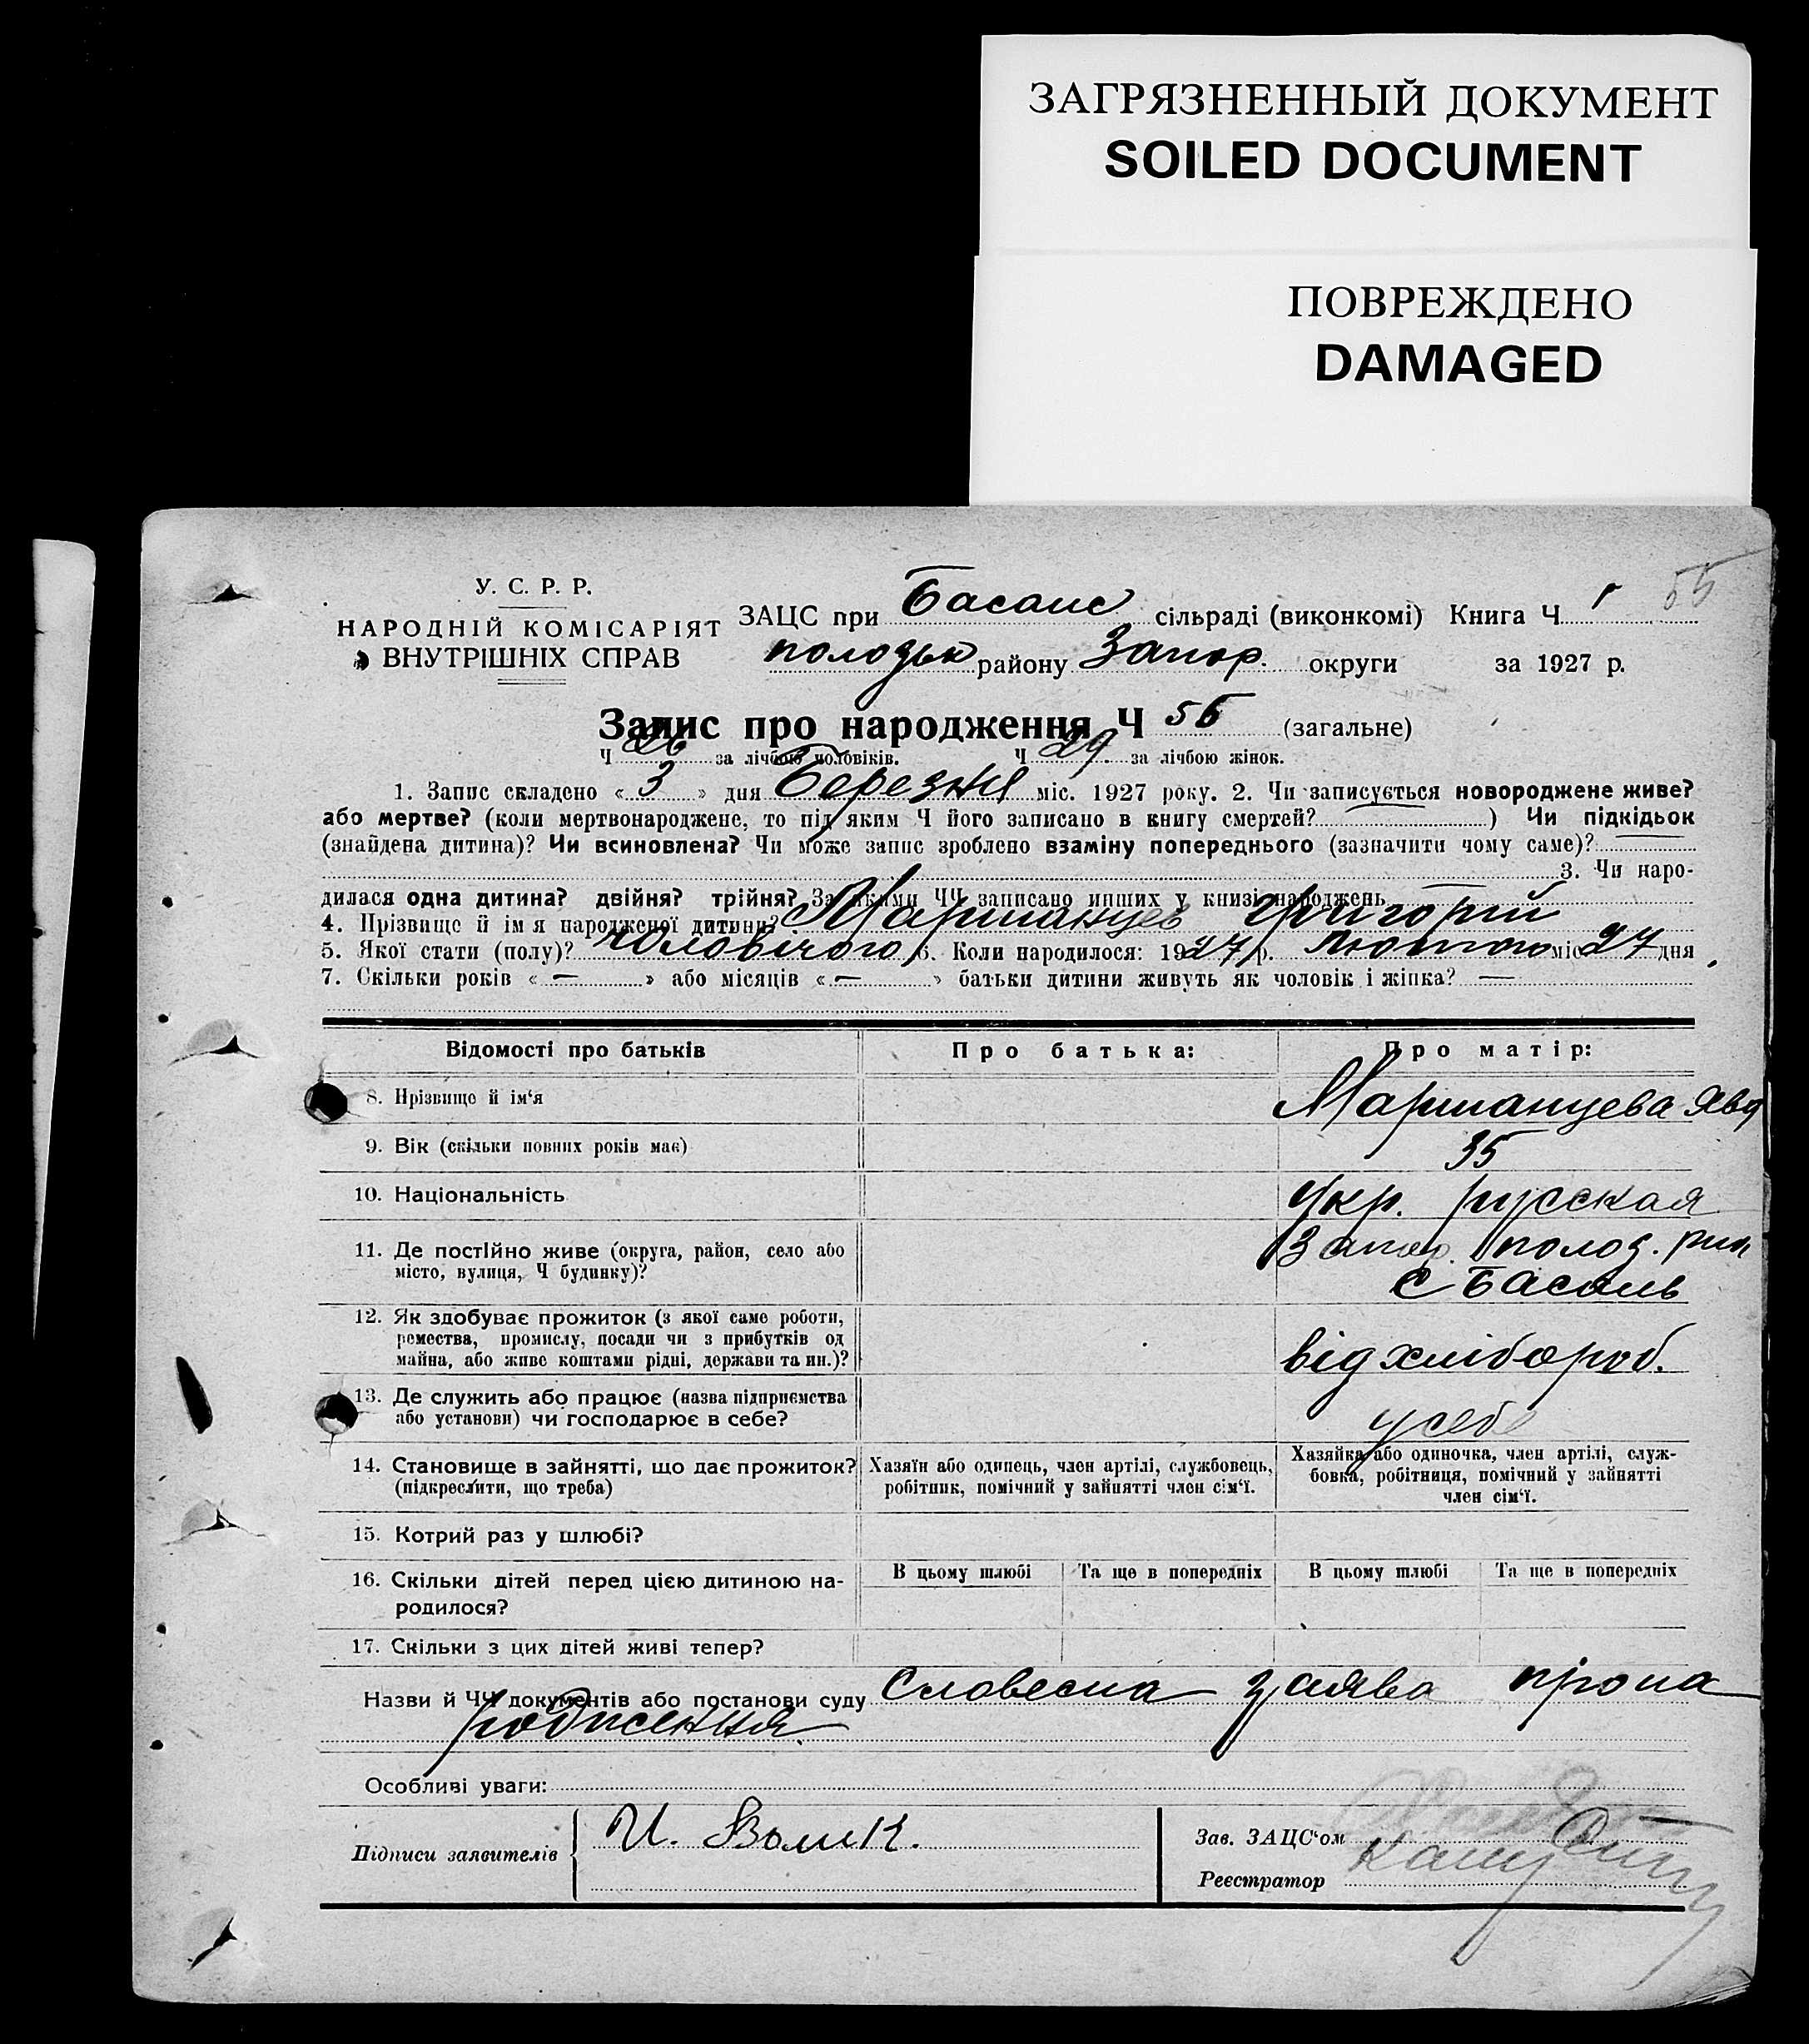 ЗАГРЯЗНЕННЫЙ ДОКУМЕНТ
SOILED DOCUMENT
ПОВРЕЖДЕНО
DAMAGED
55
У. С. Р. Р.
НАРОДНІЙ КОМІСАРІЯТ
ВНУТРІШНІХ СПРАВ
ЗАЦС при Басанс сільраді (виконкомі) Книга Ч 1
пологськ району Запор. округи за 1927 р.
Запис про народження Ч 56 (загальне)
Ч 26 за лічбою чоловіків. Ч 29. за лічбою жінок.
1. Запис складено « 3 » дня Березня міс. 1927 року. 2. Чи записується новороджене живе?
або мертве? (коли мертвонароджене, то під яким Ч його записано в книгу смертей? ) Чи підкідьок
(знайдена дитина)? Чи всиновлена? Чи може запис зроблено взаміну попереднього (зазначити чому саме)?
3. Чи наро-
дилася одна дитина? двійня? трійня? За якими ЧЧ записано инших у книзі народжень
4. Прізвище й ім я народженої дитини? Маршанцев Григорій
5. Якої стати (полу)? чоловічого 6. Коли народилося: 1927 р. Лютого міс 27 дня
7. Скільки років « — » або місяців « — » батьки дитини живуть як чоловік і жінка? —
Відомості про батьків Про батька: Про матір:
8. Прізвище й ім‘я Маршанцева Явд
9. Вік (скільки повних років має) 35
10. Національність Укр. русская
11. Де постійно живе (округа, район, село або Запор. полог. рай
місто, вулиця, Ч будинку)? с Басань
12. Як здобуває прожиток (з якої саме роботи,
ремества, промислу, посади чи з прибутків од
майна, або живе коштами рідні, держави та ин.)? від хлібороб.
13. Де служить або працює (назва підприємства
або установи) чи господарює в себе? у себе
14. Становище в зайнятті, що дає прожиток? Хазяїн або одинець, член артілі, службовець, Хазяйка або одиночка, член артілі, служ-
(підкреслити, що треба) робітник, помічний у зайнятті член сім‘ї. бовка, робітниця, помічний у зайнятті
член сім‘ї.
15. Котрий раз у шлюбі?
16. Скільки дітей перед цією дитиною на- В цьому шлюбі Та ще в попередніх В цьому шлюбі Та ще в попередніх
родилося?
17. Скільки з цих дітей живі тепер?
Назви й ЧЧ документів або постанови суду Словесна заява про на
родження.
Особливі уваги:
Підписи заявителів И. Волик.
Зав. ЗАЦС‘ом
Реєстратор